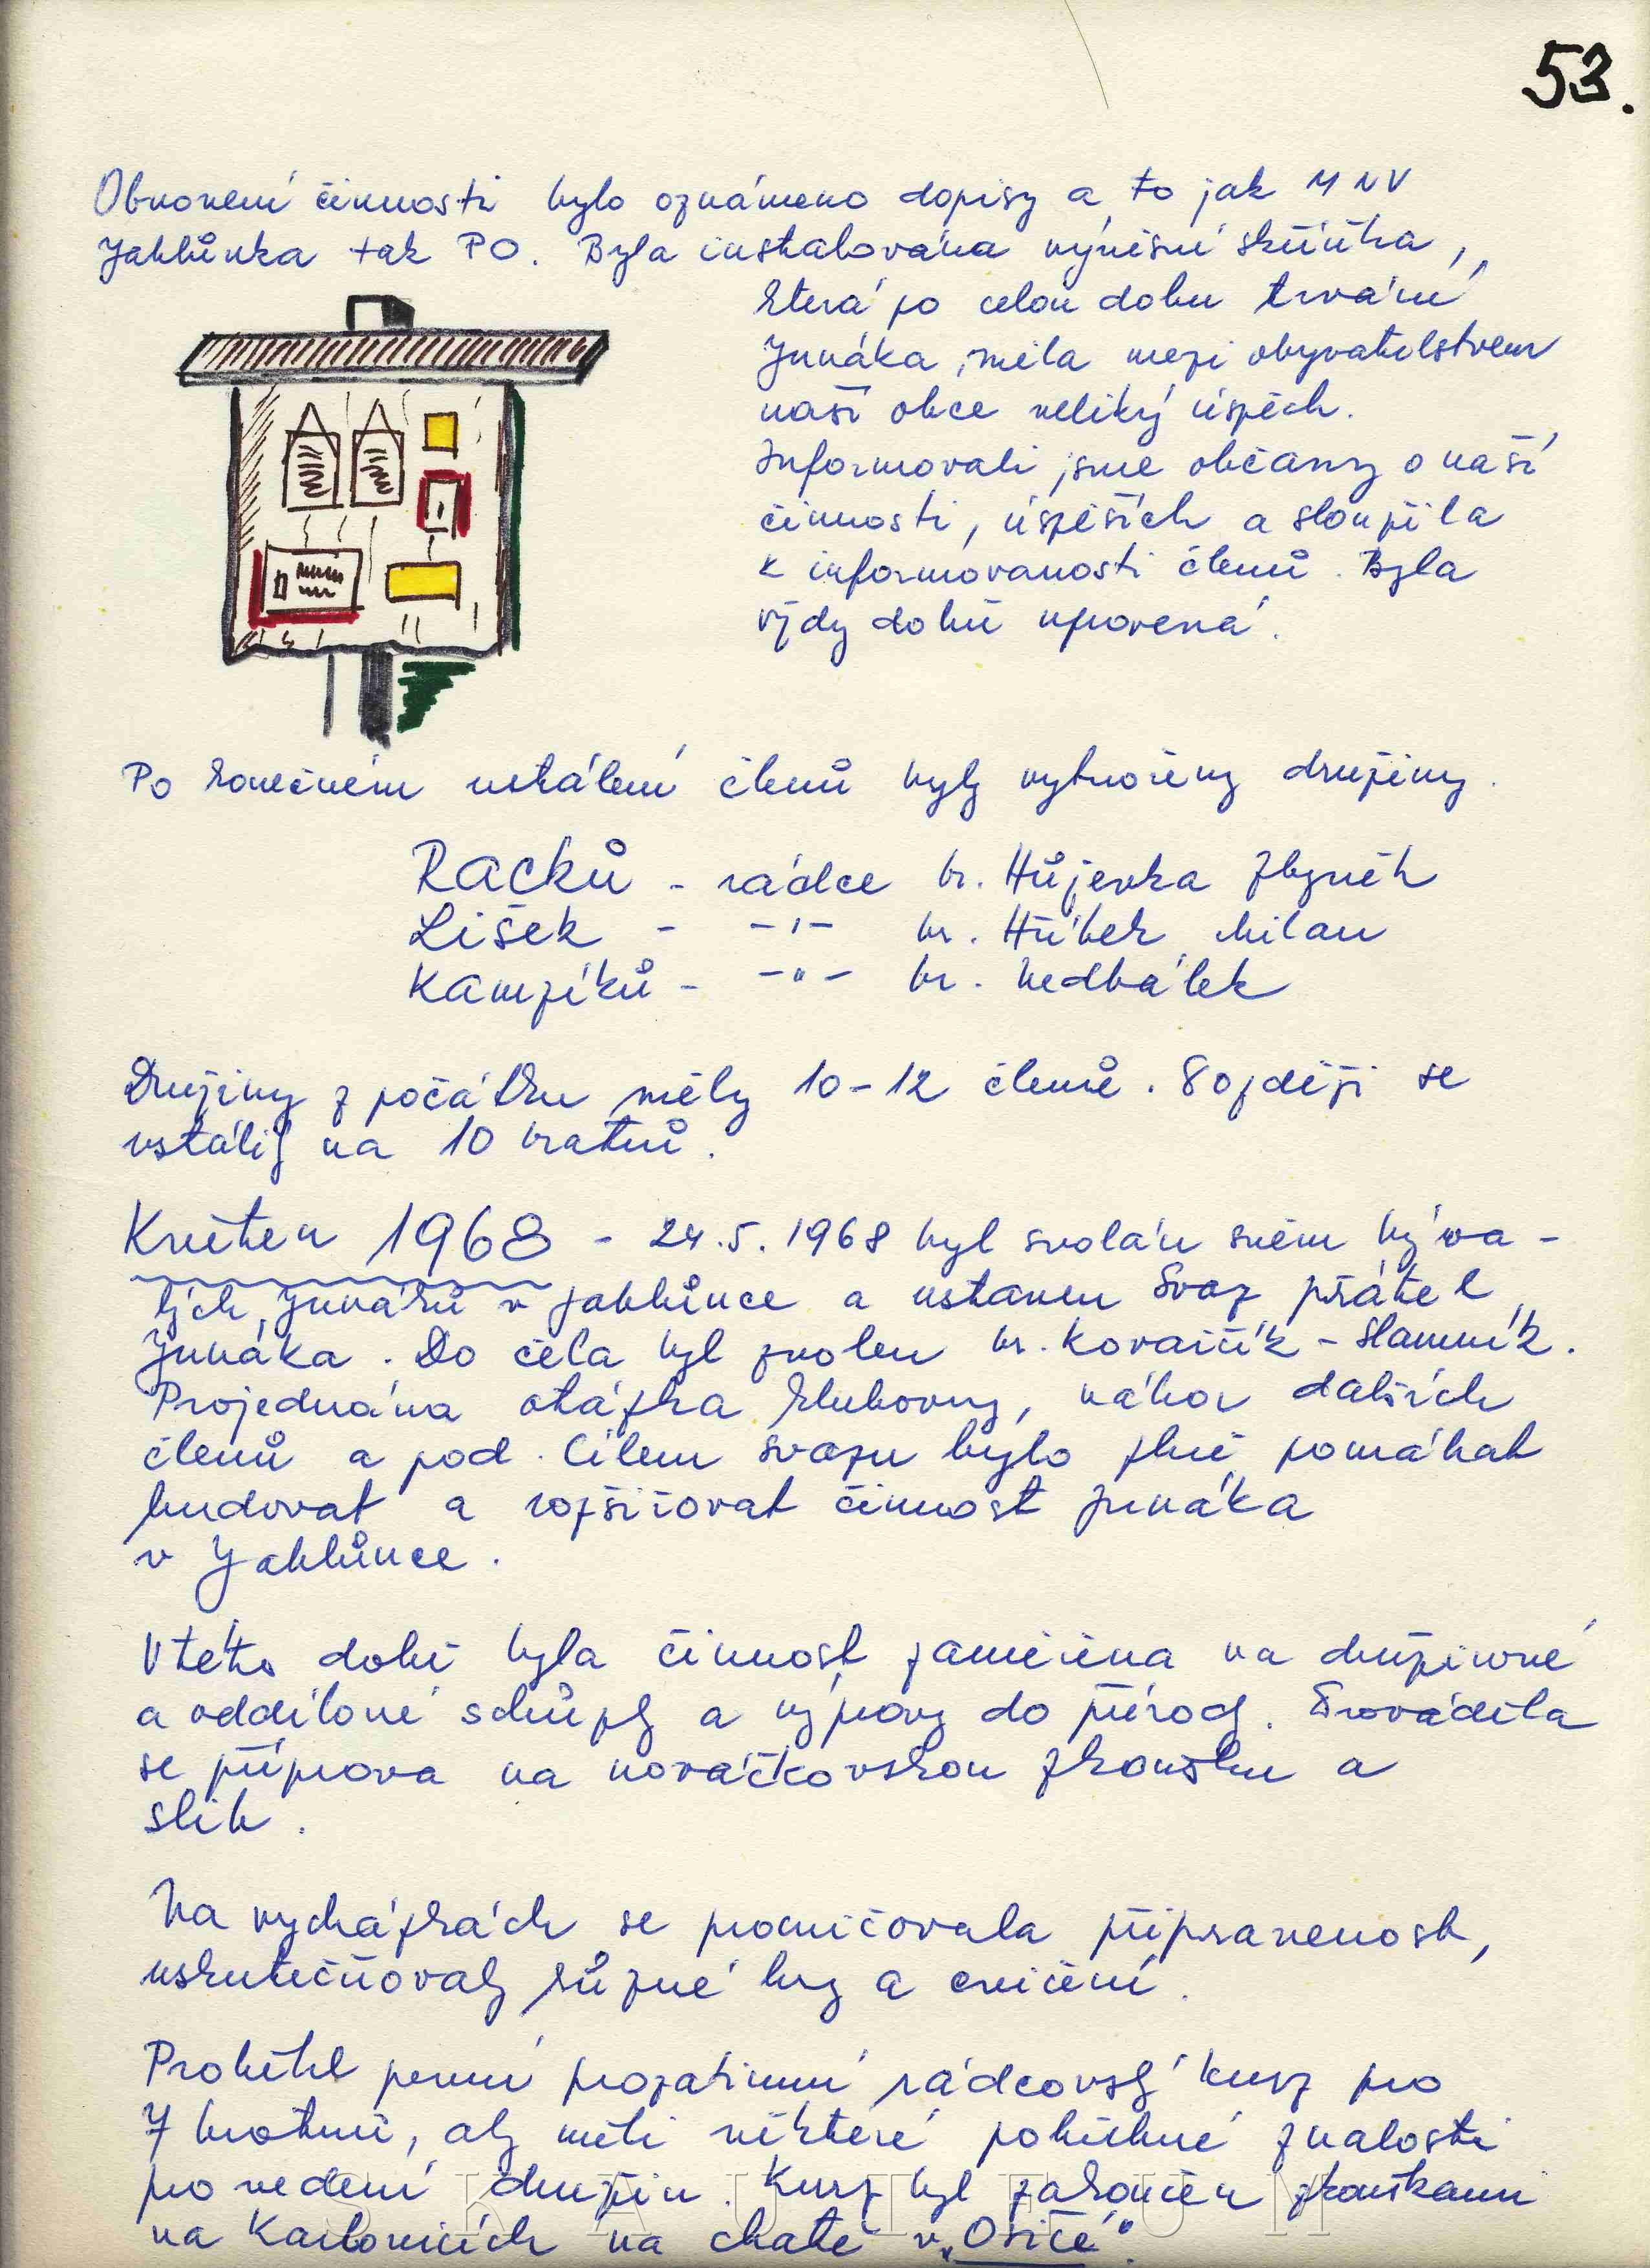 53.
Obnovení činnosti bylo oznámeno dopisy a to jak MNV
Jablůnka tak PO. Byla instalována vývěsní skříňka,
která po celou dobu trvání
Junáka, měla mezi obyvatelstvem
naší obce veliký úspěch.
Informovali jsme občany o naší
činnosti, úspěších a sloužila
k informovanosti členů. Byla
vždy dobře upravená.
Po konečném ustálení členů byly vytvořeny družiny.
Racků - rádce br. Hůjevka Zbyněk
Lišek - -"- br. Hříbek Milan
Kamzíků - -"- br. Nedbálek
Družiny z počátku měly 10-12 členů. Později se
ustálily na 10 bratrů.
Květen 1968 - 24.5.1968 byl svolán sněm býva-
lých Junáků v Jablůnce a ustaven Svaz přátel
Junáka. Do čela byl zvolen br. Kovařčík - Slavník.
Projednána otázka klubovny, nábor dalších
členů a pod. Cílem svazu bylo plně pomáhat
budovat a rozšiřovat činnost Junáka
v Jablůnce.
V této době byla činnost zaměřena na družinové
a oddílové schůzky a výpravy do přírody. Prováděla
se příprava na nováčkovskou zkoušku a
slib.
Na vycházkách se procvičovala připravenost,
uskutečňovaly různé hry a cvičení.
Proběhl první prozatimní rádcovský kurz pro
7 bratrů, aby měli některé potřebné znalosti
pro vedení družin. Kurz byl zakončen zkouškami
na Karlovicích na chatě v „Osiče".
SKAUTEUM